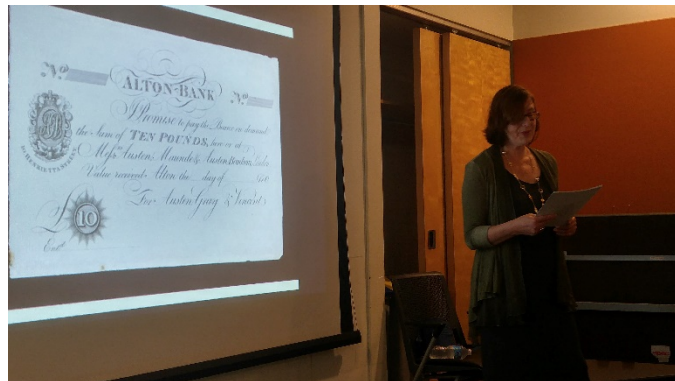 Nº Nº
ALTON-BANK
I Promise to pay the Bearer on demand
the Sum of TEN POUNDS, here or at
Messrs Austen, Maunde & Austen Bankers, London
Value received Alton the day of
For Austen, Gray & Vincent,
£ 10
Entd
HENRIETTA STREET